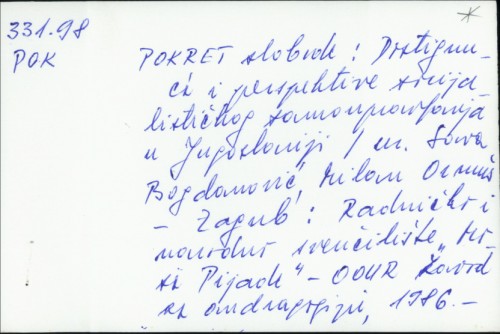 331.98
POK
POKRET slobode : Dostignu-
ća i perspektive socija-
lističkog samoupravljanja
u Jugoslaviji / ur. Sava
Bogdanović, Milan
– Zagreb : Radničko i
narodno sveučilište „Mo-
ša Pijade“ – OOUR Zavod
za andragogiju, 1986. –